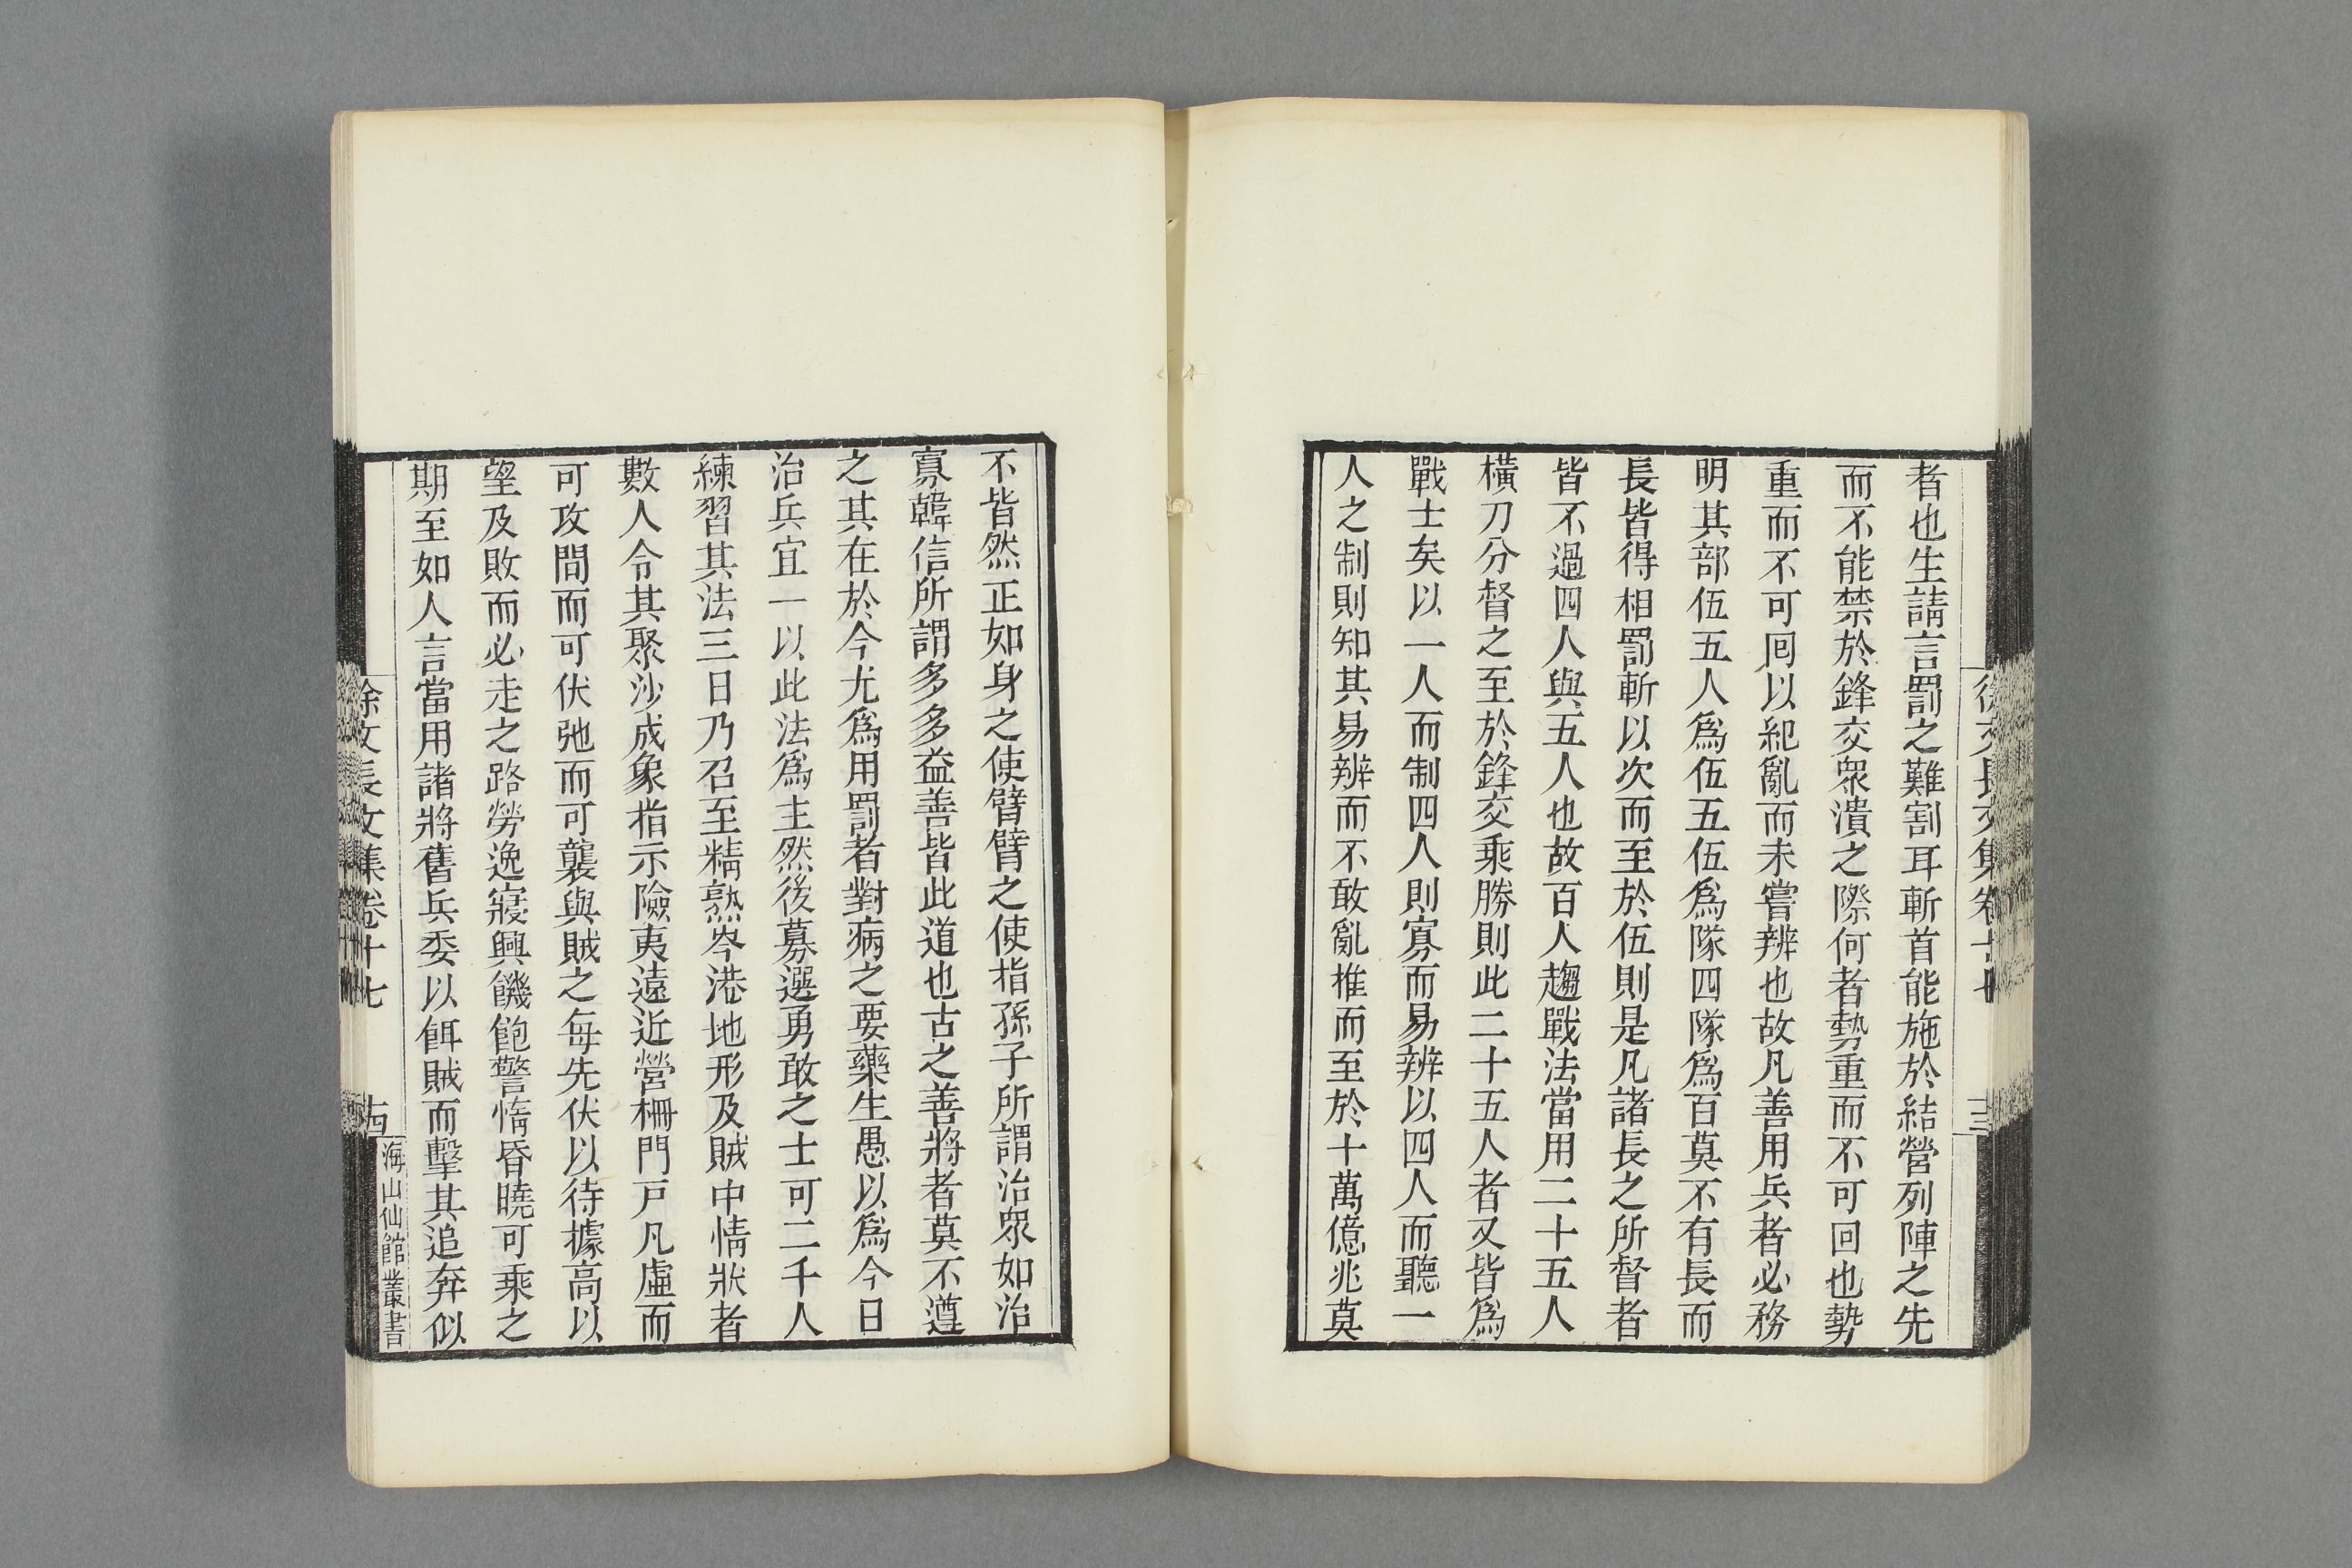 者也生請言罰之難割耳斬首能施於結營列陣之先
而不能禁於鋒交衆潰之際何者勢重而不可回也勢
重而不可囘以紀亂而未嘗辨也故凡善用兵者必務
明其部伍五人爲伍五伍爲隊四隊爲百莫不有長而
長皆得相罰斬以次而至於伍則是凡諸長之所督者
皆不過四人與五人也故百人趨戰法當用二十五人
橫刀分督之至於鋒交乘勝則此二十五人者又皆爲
戰士矣以一人而制四人則寡而易辨以四人而聽一
人之制則知其易辨而不敢亂推而至於十萬億兆莫
不皆然正如身之使臂臂之使指孫子所謂治衆如治
寡韓信所謂多多益善皆此道也古之善將者莫不遵
之其在於今尤爲用罰者對病之要藥生愚以爲今日
治兵宜一以此法爲主然後募選勇敢之士可二千人
練習其法三日乃召至精熟岑港地形及賊中情狀者
數人令其聚沙成象指示險夷遠近營柵門戸凡虛而
可攻間而可伏弛而可襲與賊之每先伏以待據高以
望及敗而必走之路勞逸寢興饑飽警惰昏曉可乘之
期至如人言當用諸將舊兵委以餌賊而擊其追奔似
徐文長文集卷十七
海山仙館叢書